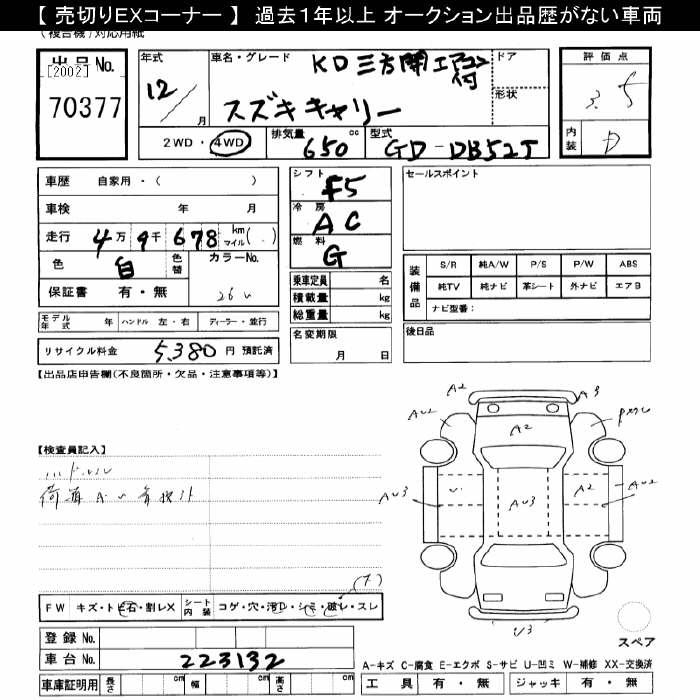 【 売切りEXコーナー 】 過去1年以上 オークション出品歴がない車両
(複合機)対応用紙
出品No.
[2002]
70377
年式
12/
月
車名・グレード
KD三方開エアコン付
スズキキャリー
ドア
形状
2WD・4WD
排気量 650 cc
型式 GD-DB52T
評価点
3.5
内装 D
車歴 自家用・( )
車検 年 月
走行 4万9千678 km マイル( )
色 白 色替
カラーNo.
26U
保証書 有・無
シフト F5
冷房 AC
燃料 G
乗車定員 名
積載量 kg
総重量 kg
名変期限
月 日
セールスポイント
装備品
S/R 純A/W P/S P/W ABS
純TV 純ナビ 革シート 外ナビ エアB
ナビ型番:
後日品
モデル年式 年 ハンドル 左・右 ディーラー・並行
リサイクル料金 5,380 円 預託済
【出品店申告欄(不良箇所・欠品・注意事項等)】
【検査員記入】
A2 A3
AU2 A2
AU3 AU3 A2 AU2
U3
FW キズ・トビ石・割レX シート内装 コゲ・穴・汚D・シミ・破レ・スレ
登録No.
車台No. 223132
車庫証明用 長さ cm 幅 cm 高さ cm
スペア
A-キズ C-腐食 E-エクボ S-サビ U-凹ミ W-補修 XX-交換済
工具 有・無 ジャッキ 有・無